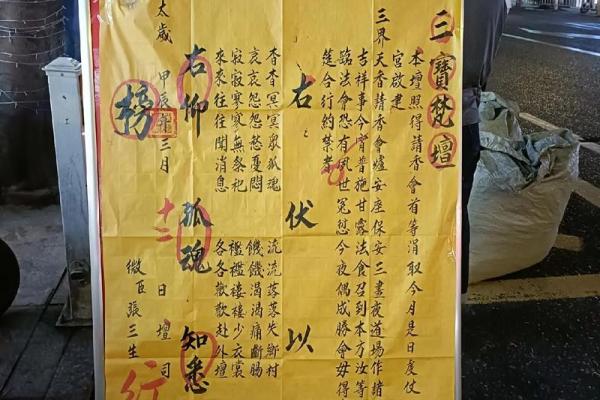 三寶梵壇
本壇照得請香會首等涓取今月是日虔仗
宮啟建
三界天香請香會爐安座保安三晝夜道場作諸
吉祥事今宵普施甘露法食召到本方汝等
臨法會恐有夙世冤愆今夜偶成勝會毋得
筵合行約禁者
右伏以
杳杳冥冥眾孤魂 流流落落失鄉村
哀哀怨怨憂悶 饑饑渴渴痛斷腸
寂寂寒寒無祭祀 襤襤褸褸少衣裳
來來往往聞消息 各各歡歡赴外壇
右仰孤魂知悉
太歲甲辰年三月十二日壇司
微臣張三生
榜行